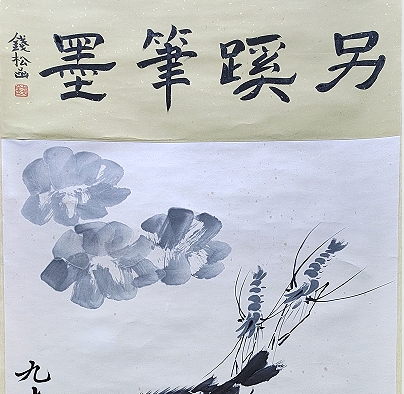 另蹊筆墨
錢松喦
九